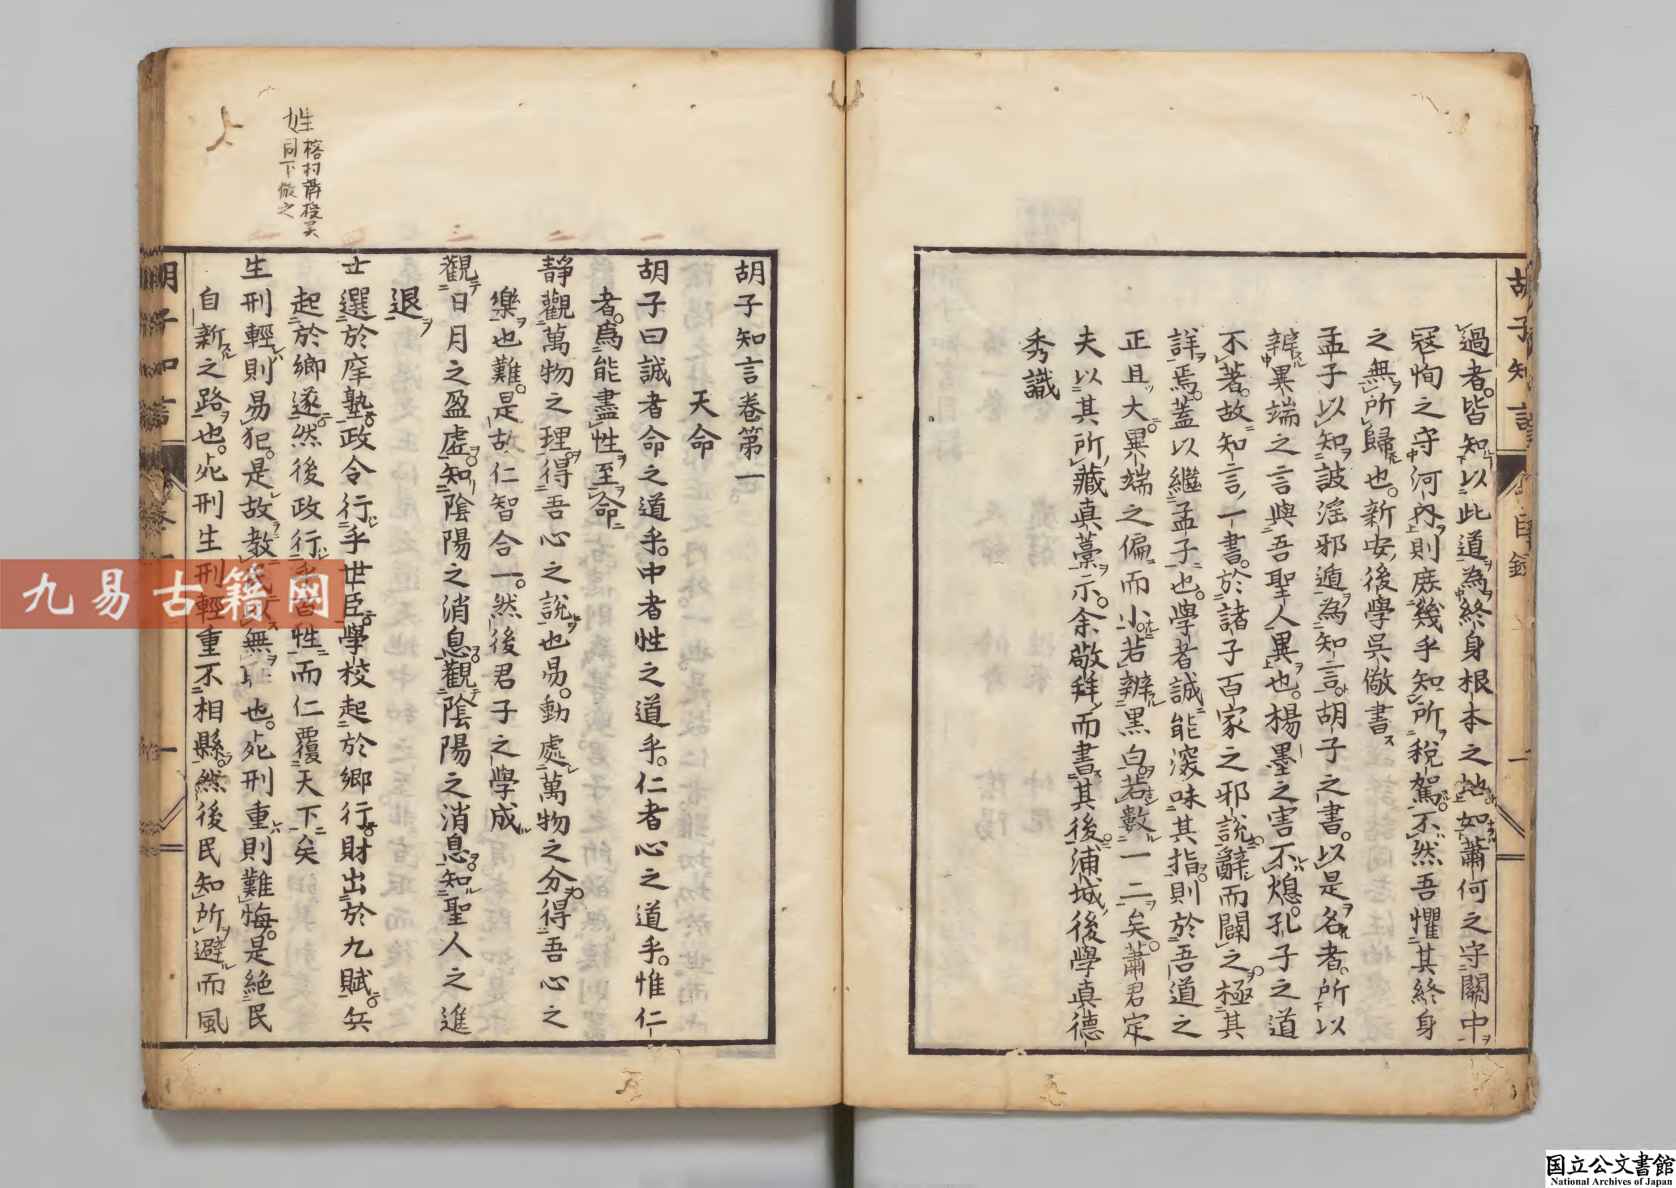 過者皆知以此道為終身根本之地如蕭何之守關中
冦恂之守河內則庻幾乎知所稅駕不然吾懼其終身
之無所歸也新安後學吳儆書
孟子以知詖淫邪遁為知言胡子之書以是名者所以
辨異端之言與吾聖人異也楊墨之害不熄孔子之道
不著故知言一書於諸子百家之邪說辭而闢之極其
詳焉蓋以繼孟子也學者誠能深味其指則於吾道之
正且大異端之偏而小若辨黑白若數一二矣蕭君定
夫以其所藏真藁示余敬拜而書其後浦城後學真德
秀識
胡子知言卷第一
天命
胡子曰誠者命之道乎中者性之道乎仁者心之道乎惟仁
者為能盡性至命
靜觀萬物之理得吾心之說也易動處萬物之分得吾心之
樂也難是故仁智合一然後君子之學成
觀日月之盈虛知陰陽之消息觀陰陽之消息知聖人之進
退
士選於庠塾政令行乎世臣學校起於鄉行財出於九賦兵
起於鄉遂然後政行乎百性而仁覆天下矣
生刑輕則易犯是故教民以無恥也死刑重則難悔是絕民
自新之路也死刑生刑輕重不相縣然後民知所避而風
胡子知言
目錄
一
胡子知言
卷一
一
姓
同下倣之
九易古籍网
国立公文書館
National Archives of Japan